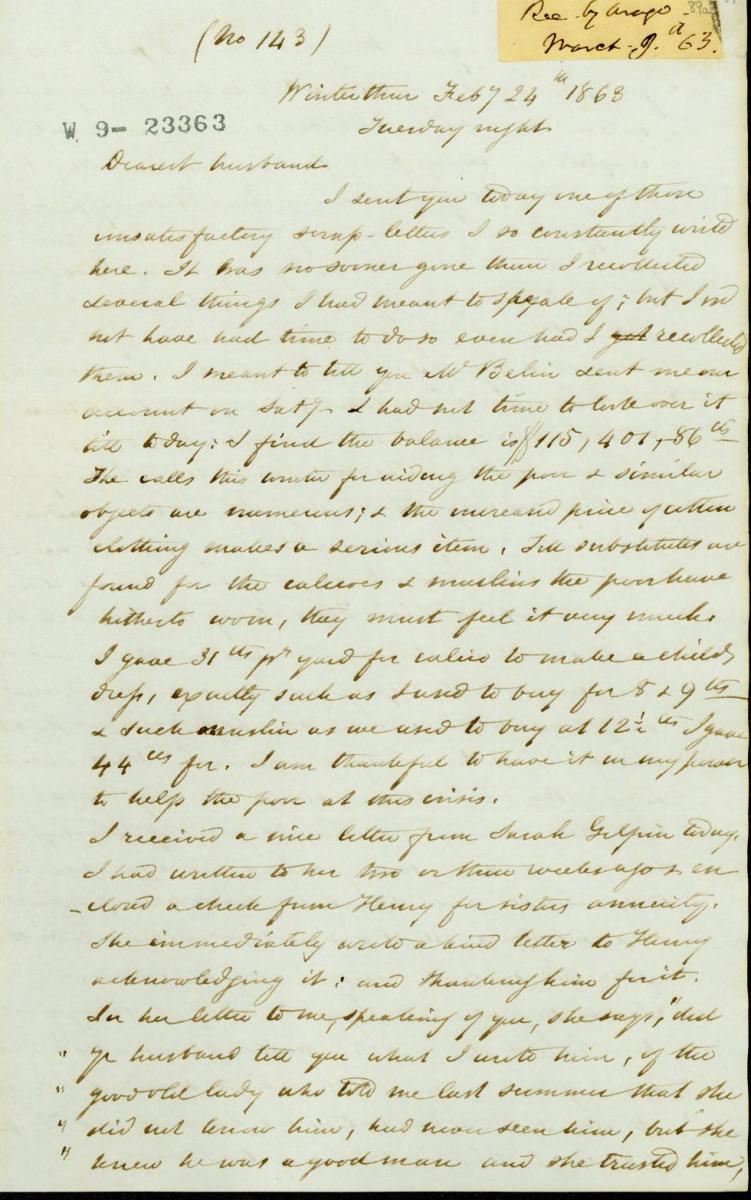 Rec. by Arago
March 9th 63.
89a
(No 143)
Winterthur Feby 24th 1863
W 9- 23363
Tuesday night
Dearest husband
I sent you today one of those
unsatisfactory scrap-letters I so constantly write
here. It was no sooner gone than I recollected
several things I had meant to speak of; but I wd
not have had time to do so even had I yet recollected
them. I meant to tell you Mr Belin sent me our
account on Saty & I had not time to look over it
till today: I find the balance is $115,401,-86cts
The calls this winter for aiding the poor & similar
objects are numerous; & the increased price of cotton
clothing makes a serious item. Till substitutes are
found for the calicoes & muslins the poor have
hitherto worn, they must feel it very much.
I gave 31cts pr yard for calico to make a child's
dress, exactly such as I used to buy for 8 & 9cts
& such muslin as we used to buy at 12½cts I gave
44cts for. I am thankful to have it in my power
to help the poor at this crisis.
I received a nice letter from Sarah Gilpin today.
I had written to her two or three weeks ago & en
-closed a check from Henry for sisters annuity.
She immediately wrote a kind letter to Henry
acknowledging it; and thanking him for it.
In her letter to me, speaking of you, she says, "did
" yr husband tell you what I wrote him, of the
" good old lady who told me last summer that she
" did not know him, had never seen him, but she
" knew he was a good man and she trusted him,